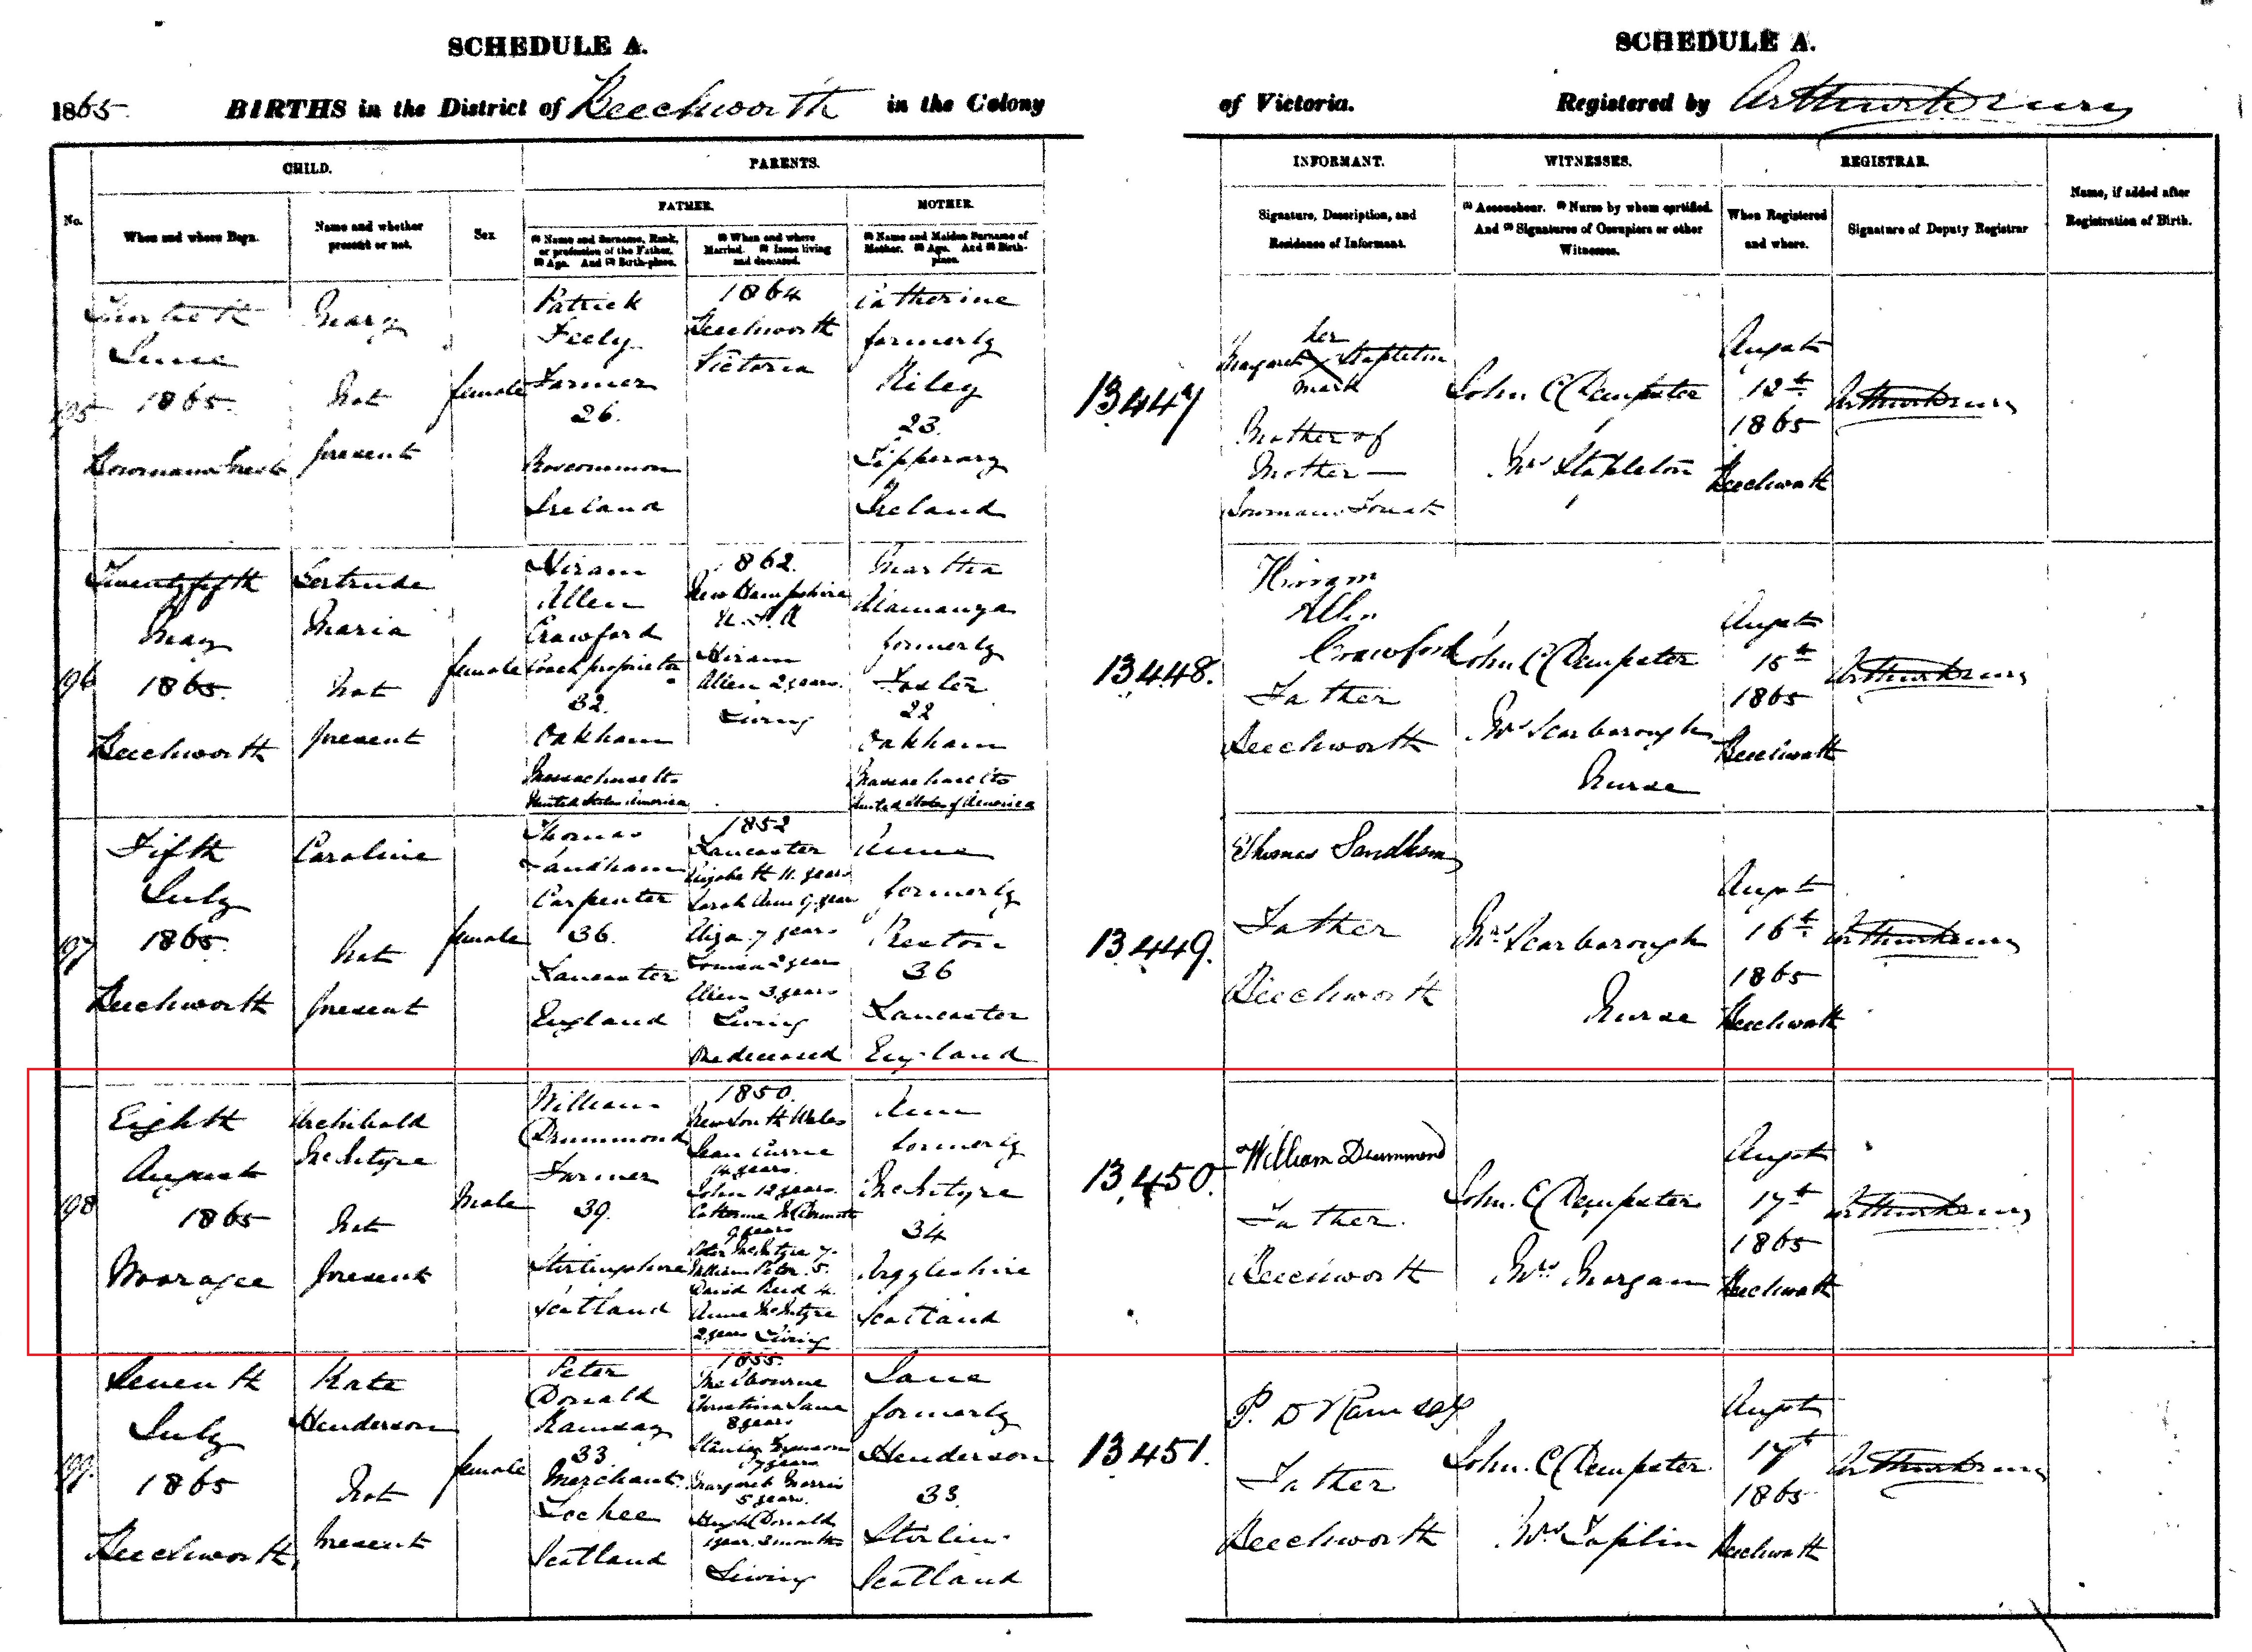 SCHEDULE A.
SCHEDULE A.
1865. BIRTHS in the District of Beechworth in the Colony
of Victoria. Registered by
CHILD.
PARENTS.
INFORMANT.
WITNESSES.
REGISTRAR.
No.
When and where Born.
Name and whether
present or not.
Sex
FATHER.
MOTHER.
(1) Name and Surname, Rank,
or profession of the Father.
(2) Age. And (3) Birth-place.
(1) When and where
Married. (2) Issue living
and deceased.
(1) Name and Maiden Surname of
Mother. (2) Age. And (3) Birth-
place.
Signature, Description, and
Residence of Informant.
(1) Accoucheur. (2) Nurse by whom certified.
And (3) Signatures of Occupiers or other
Witnesses.
When Registered
and where.
Signature of Deputy Registrar
Name, if added after
Registration of Birth.
195
June
1865.
Mary
Not
present
female
Patrick
Feely
Farmer
26.
Roscommon
Ireland
1864
Beechworth
Victoria
Catherine
formerly
Riley
23.
Tipperary
Ireland
13447
her
Margaret X Stapleton
mark
Mother of
Mother
John C Dempster
Mrs Stapleton
12th
1865
Beechworth
196
Twenty fifth
May
1865.
Beechworth
Gertrude
Maria
Not
present
female
Hiram
Allen
Crawford
Coach proprietor
32.
Oakham
Massachusetts
United States America
1862.
New Hampshire
U.S.A
Hiram
Allen 2 years.
Living
Martha
formerly
22
Oakham
Massachusetts
United States of America
13448.
Hiram
Allen
Crawford
Father
Beechworth
John C Dempster
Mrs Scarborough
Nurse
15th
1865
Beechworth
197
Fifth
July
1865.
Beechworth
Caroline
Not
present
female
Thomas
Sandham
Carpenter
36.
Lancaster
England
1852
Lancaster
Elizabeth 11. years
Sarah Ann 9 years
Eliza. 7 years
3 years
Living
One deceased
Anne
formerly
Preston
36
Lancaster
England
13449.
Thomas Sandham
Father
Beechworth
Mrs Scarborough
Nurse
16th
1865
Beechworth
198
Eighth
August
1865
Wooragee
Archibald
McIntyre
Not
present
Male
William
Drummond
Farmer
39.
Stirlingshire
Scotland
1850.
New South Wales
Jean Currie
14 years.
John 12 years.
Catherine McDermott
9 years
Peter McIntyre 7.
William Peter. 5.
David Reid 4.
Anne McIntyre
2 years Living
Ann
formerly
McIntyre
34
Argyleshire
Scotland
13450.
William Drummond
Father.
Beechworth
John. C Dempster
Mrs Morgan
17th
1865
Beechworth
199.
Seventh
July
1865
Beechworth
Kate
Henderson
Not
Present
female
Peter
Donald
Ramsay
33
Merchant.
Lochee
Scotland
1855.
Melbourne
Christina Jane
8 years
7 years
Margaret Morris
5 years.
Hugh Donald
1 year. 2 months
Living
Jane
formerly
Henderson
33.
Scotland
13451.
P. D Ramsay
Father
Beechworth
John. C Dempster
Mrs Taplin
17th
1865
Beechworth